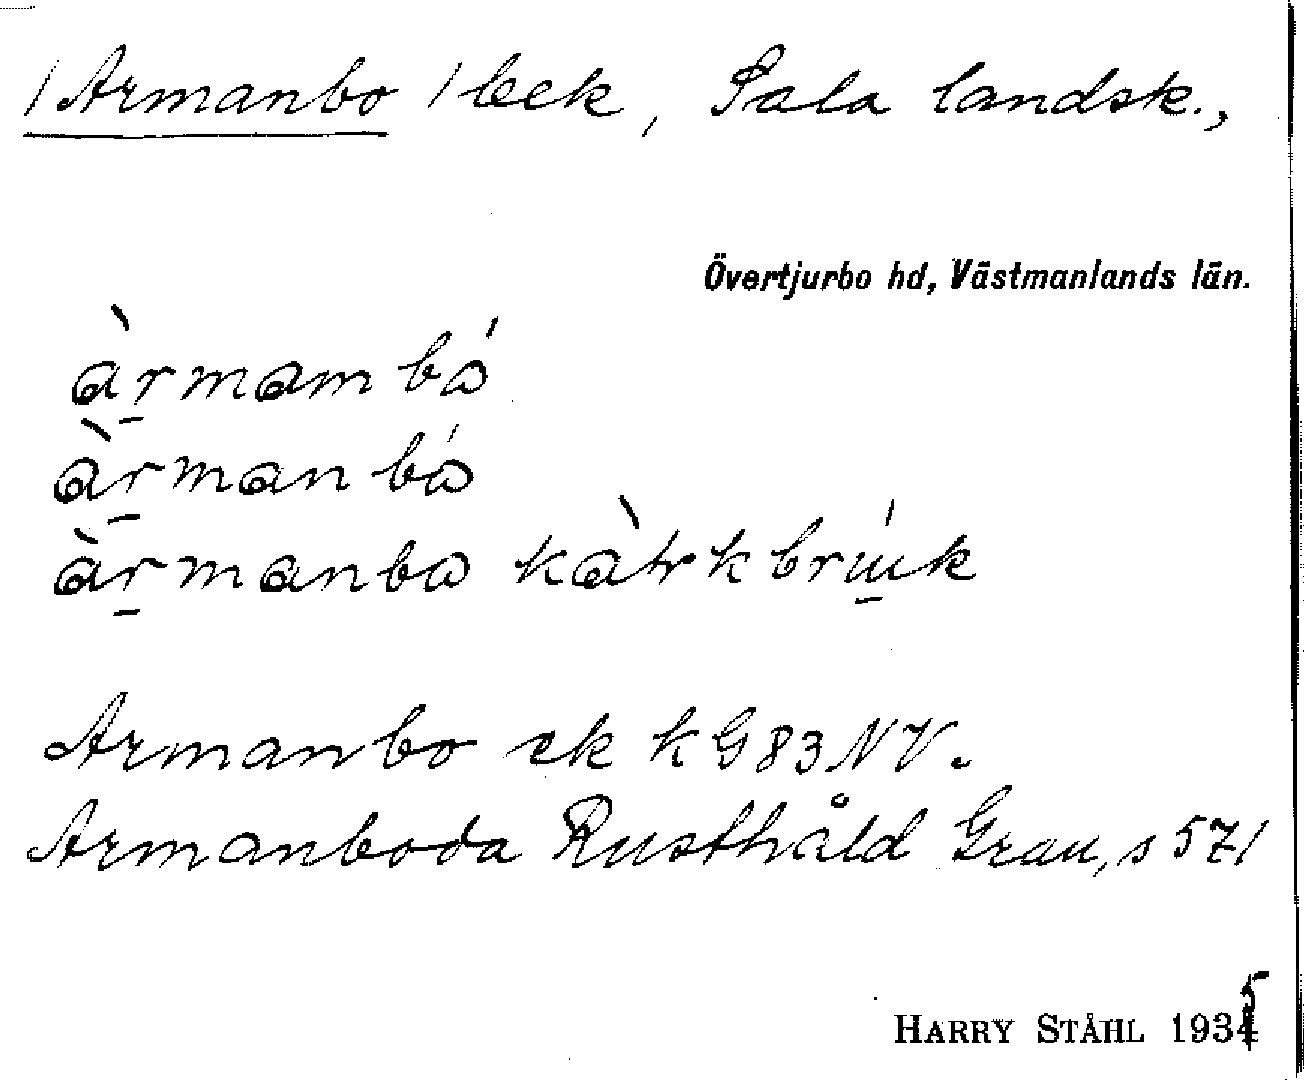 /Armanbo / beck, Sala landsk.,
Övertjurbo hd, Västmanlands län.
àr̠mambó
àr̠manbó
àr̠manbo kàrkbru̠ḱ
Armanbo ek k G 83 NV.
Armanboda Rusthåld Grau, s 571
HARRY STÅHL 1935